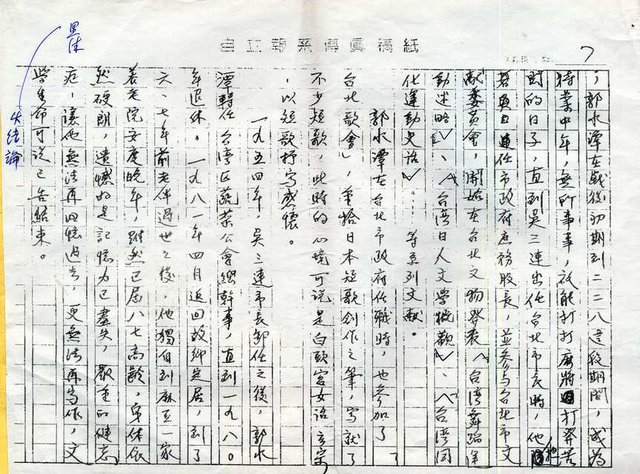 自立報系傳真稿紙
7
黑体
失結論
，郭水潭在戰後初期到二二八這段期間，成為
待業中年，無所事事，祇能打打麻將
時的日子，直到吳三連出任台北市長時，他
市政府庶務股長，並參與台北市文
獻委員會，開始在台北文物發表〈台灣舞蹈
〉、〈台灣日人文學概觀〉、〈台灣同
化運動史話〉……等系列文獻。
郭水潭在台北市政府任職時，也參加了
台北歌會，重拾日本短歌創作之筆，寫就了
不少短歌，此時的心境可說是白頭宮女話玄宗
，以短歌抒寫感懷。
一九五四年，吳三連市長卸任之後，郭水
潭轉任台灣區蔬菜公會總幹事，直到一九八〇
年退休。一九八一年四月返回故鄉定居，到了
六、七年前老伴過世之後，他獨自到麻豆一家
養老院安度晚年，雖然已屆八七高齡，身体依
然硬朗，遺憾的是記憶力已盡失，嚴重的健忘
症，讓他無法再回憶過去，更無法再寫作，文
學生命可說已告結束。